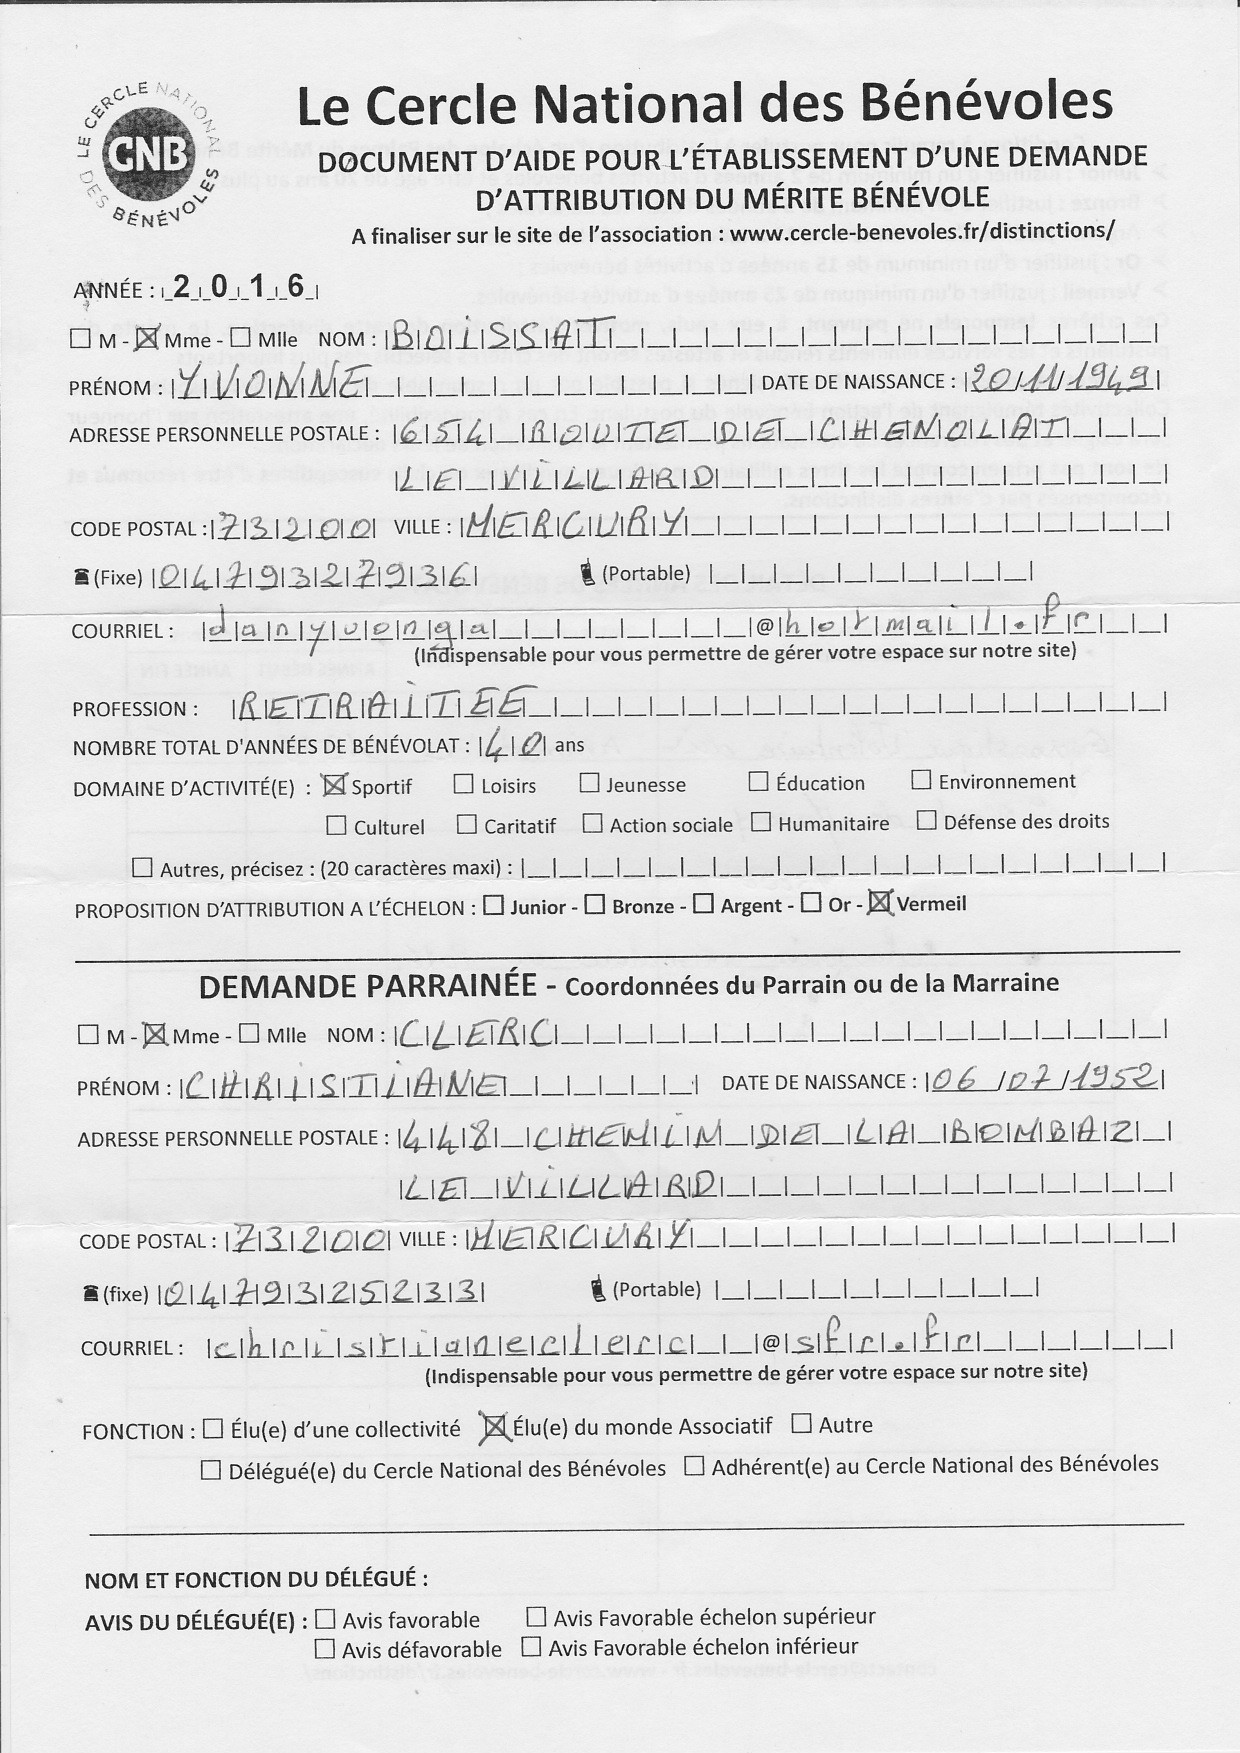 LE CERCLE NATIONAL DES BÉNÉVOLES
CNB
Le Cercle National des Bénévoles
DOCUMENT D'AIDE POUR L'ÉTABLISSEMENT D'UNE DEMANDE
D'ATTRIBUTION DU MÉRITE BÉNÉVOLE
A finaliser sur le site de l'association : www.cercle-benevoles.fr/distinctions/
ANNÉE : 2016
☐ M - ☒ Mme - ☐ Mlle NOM : BOISSAT
PRÉNOM : YVONNE DATE DE NAISSANCE : 20/11/1949
ADRESSE PERSONNELLE POSTALE : 654 ROUTE DE CHEMOLAT
LE VILLARD
CODE POSTAL : 73200 VILLE : MERCURY
(Fixe) 0479327936 (Portable)
COURRIEL : danyvonga@hotmail.fr
(Indispensable pour vous permettre de gérer votre espace sur notre site)
PROFESSION : RETRAITEE
NOMBRE TOTAL D'ANNÉES DE BÉNÉVOLAT : 40 ans
DOMAINE D'ACTIVITÉ(E) : ☒ Sportif ☐ Loisirs ☐ Jeunesse ☐ Éducation ☐ Environnement
☐ Culturel ☐ Caritatif ☐ Action sociale ☐ Humanitaire ☐ Défense des droits
☐ Autres, précisez : (20 caractères maxi) :
PROPOSITION D'ATTRIBUTION A L'ÉCHELON : ☐ Junior - ☐ Bronze - ☐ Argent - ☐ Or - ☒ Vermeil
DEMANDE PARRAINÉE - Coordonnées du Parrain ou de la Marraine
☐ M - ☒ Mme - ☐ Mlle NOM : CLERC
PRÉNOM : CHRISTIANE DATE DE NAISSANCE : 06/07/1952
ADRESSE PERSONNELLE POSTALE : 448 CHEMIM DE LA BOMBAZ
LE VILLARD
CODE POSTAL : 73200 VILLE : MERCURY
(fixe) 0479325233 (Portable)
COURRIEL : christianeclerc@sfr.fr
(Indispensable pour vous permettre de gérer votre espace sur notre site)
FONCTION : ☐ Élu(e) d'une collectivité ☒ Élu(e) du monde Associatif ☐ Autre
☐ Délégué(e) du Cercle National des Bénévoles ☐ Adhérent(e) au Cercle National des Bénévoles
NOM ET FONCTION DU DÉLÉGUÉ :
AVIS DU DÉLÉGUÉ(E) : ☐ Avis favorable ☐ Avis Favorable échelon supérieur
☐ Avis défavorable ☐ Avis Favorable échelon inférieur